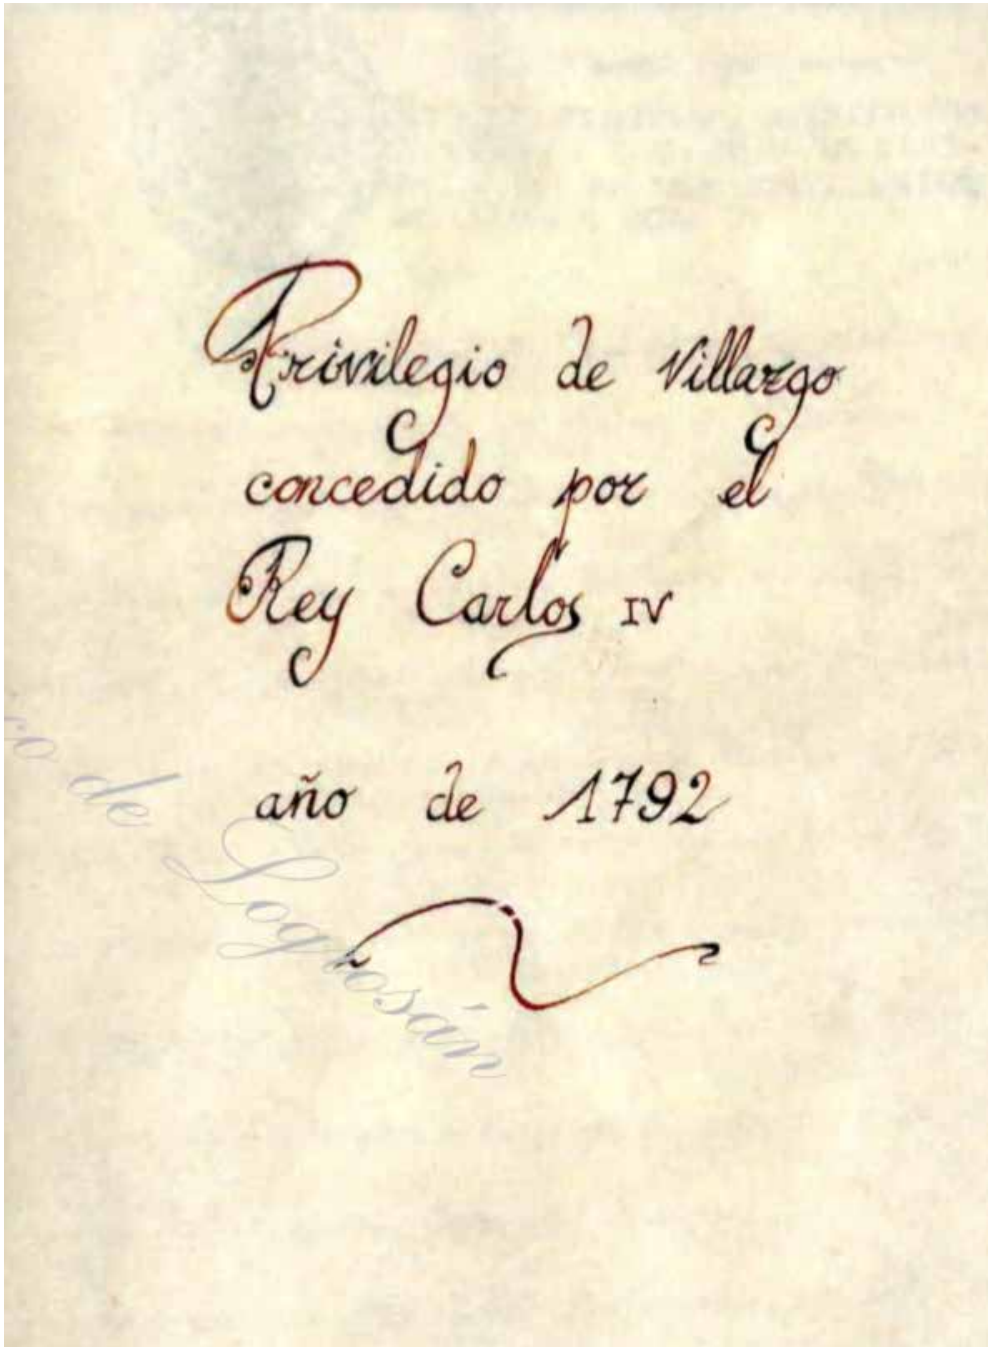 Privilegio de Villazgo
concedido por el
Rey Carlos IV
año de 1792
de Logrosán